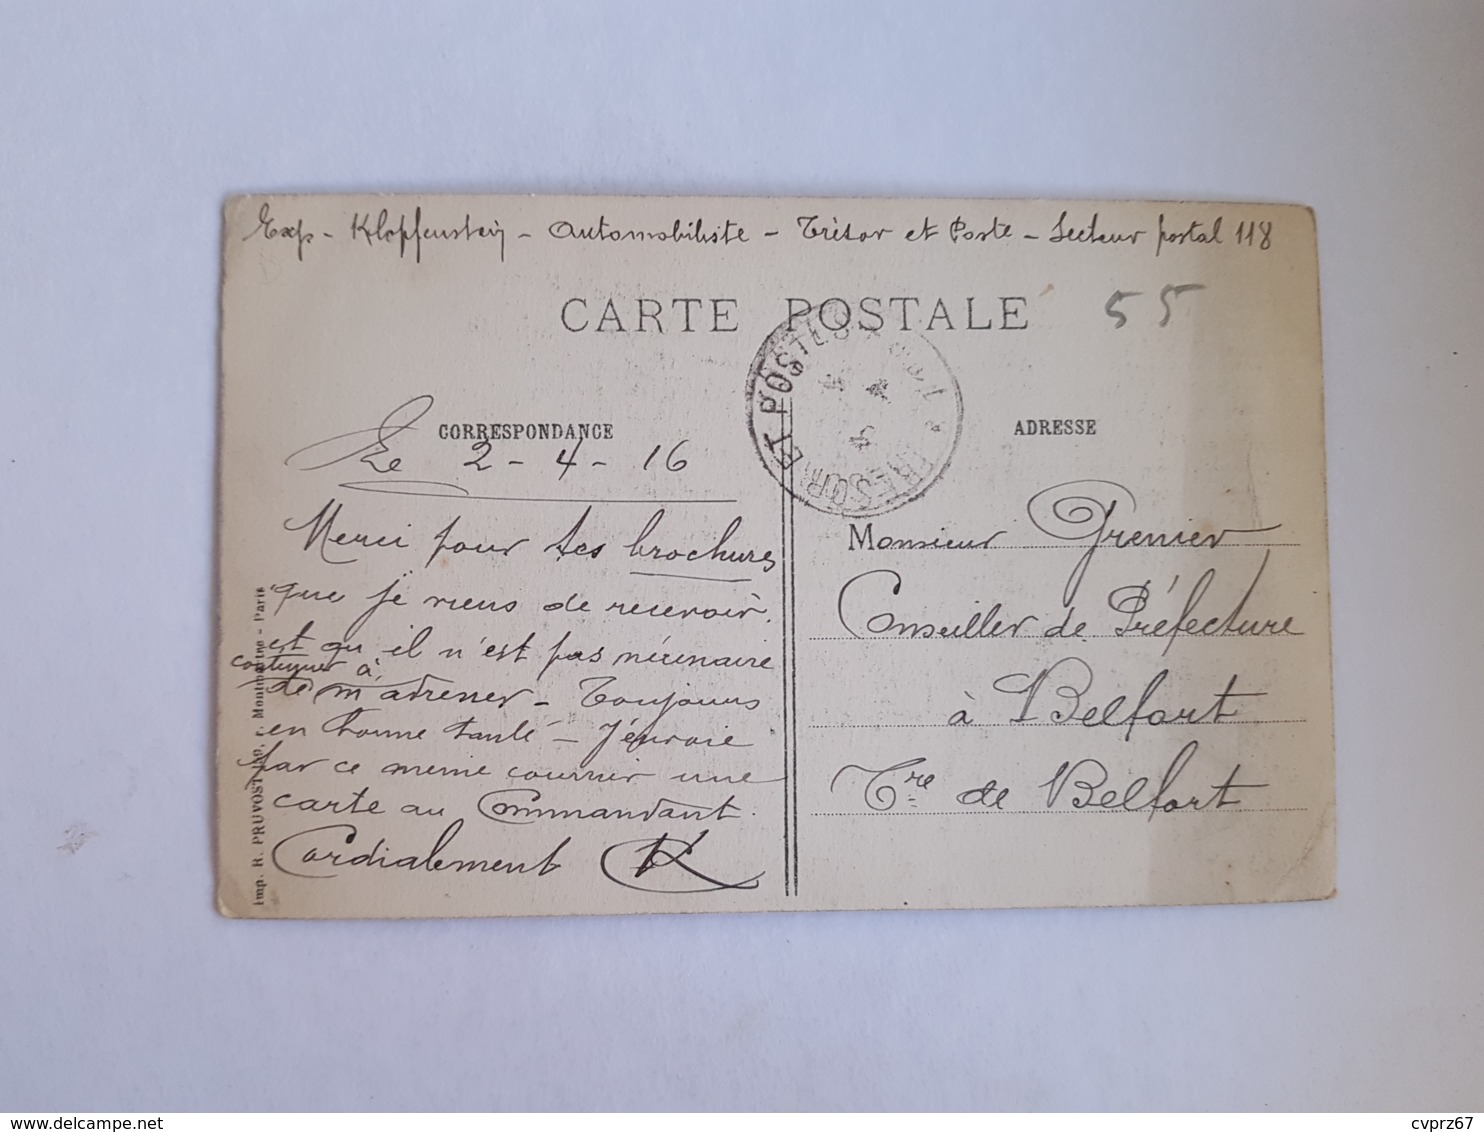 Exp - Klopfenstein - Automobiliste - Trésor et Poste - Secteur postal 118
CARTE POSTALE
55
TRESOR ET POSTES
CORRESPONDANCE
Le 2 - 4 - 16
Merci pour tes brochures
que je viens de recevoir,
et qu'il n'est pas nécessaire
continuer à
de m'adresser - Toujours
en bonne santé - J'envoie
par ce même courrier une
carte au Commandant.
Cordialement K
ADRESSE
Monsieur Grenier
Conseiller de Préfecture
à Belfort
Tre de Belfort
Imp. R. PRUVOST, r. Montmartre - Paris
delcampe.net
cvprz67